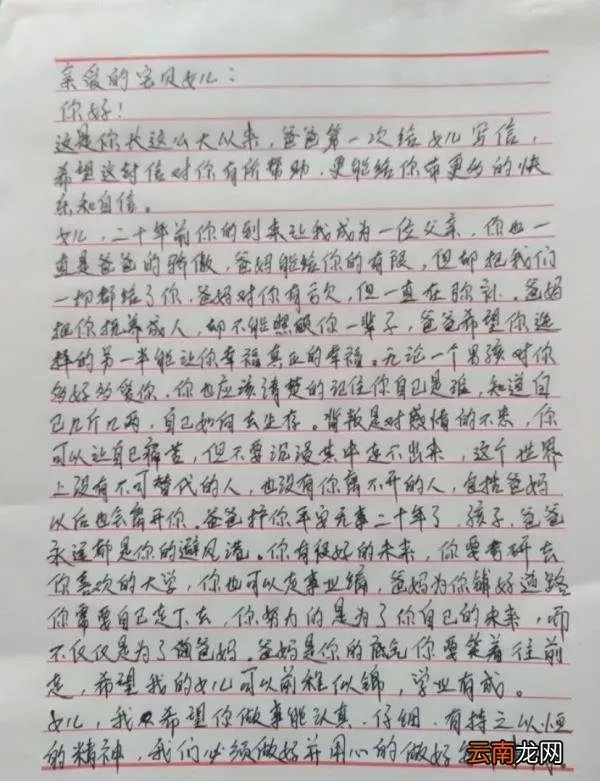 亲爱的宝贝女儿：
你好！
这是你长这么大以来，爸爸第一次给女儿写信，
希望这封信对你有所帮助，更能给你带更多的快
乐和自信。
女儿，二十年前你的到来让我成为一位父亲，你也一
直是爸爸的骄傲，爸妈能给你的有限，但却把我们
一切都给了你，爸妈对你有亏欠，但一直在弥补。爸妈
把你抚养成人，却不能照顾你一辈子，爸爸希望你选
择的另一半能让你幸福真正的幸福。无论一个男孩对你
多好多爱你，你也应该清楚的记住你自己是谁，知道自
己几斤几两，自己如何去生存。背叛是对感情的不忠，你
可以让自己痛苦，但不要沉浸其中走不出来，这个世界
上没有不可替代的人，也没有你离不开的人，包括爸妈
以后也会离开你。爸爸护你平安无事二十年了，孩子，爸爸
永远都是你的避风港。你有很好的未来，你要考研去
你喜欢的大学，你也可以走事业编，爸妈为你铺好道路
你需要自己走下去，你努力的是为了你自己的未来，而
不仅仅是为了爸妈。爸妈是你的底气你要笑着往前
走，希望我的女儿可以前程似锦，学业有成。
女儿，我只希望你做事能认真、仔细，有持之以恒
的精神，我们必须做好并用心的做好
云南龙网